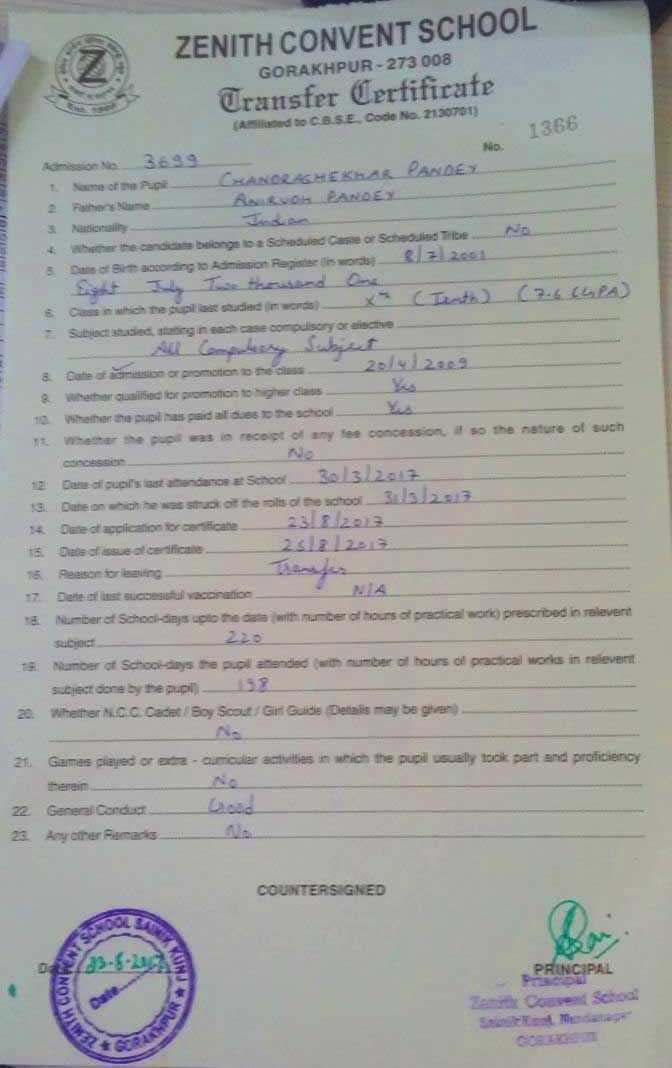 ZENITH CONVENT SCHOOL
GORAKHPUR - 273 008
Transfer Certificate
(Affiliated to C.B.S.E., Code No. 2130701)
No. 1366
Admission No. 3699
1. Name of the Pupil CHANDRASHEKHAR PANDEY
2. Father's Name ANIRUDH PANDEY
3. Nationality Indian
4. Whether the candidate belongs to a Scheduled Caste or Scheduled Tribe No
5. Date of Birth according to Admission Register (in words) 8/7/2001
Eight July Two thousand One
6. Class in which the pupil last studied (in words) Xth (Tenth) (7.6 CGPA)
7. Subject studied, stating in each case compulsory or elective
All Compulsory Subject
8. Date of admission or promotion to the class 20/4/2009
9. Whether qualified for promotion to higher class Yes
10. Whether the pupil has paid all dues to the school Yes
11. Whether the pupil was in receipt of any fee concession, if so the nature of such
concession No
12. Date of pupil's last attendance at School 30/3/2017
13. Date on which he was struck off the rolls of the school 31/3/2017
14. Date of application for certificate 23/8/2017
15. Date of issue of certificate 25/8/2017
16. Reason for leaving Transfer
17. Date of last successful vaccination N/A
18. Number of School-days upto the date (with number of hours of practical work) prescribed in relevent
subject 220
19. Number of School-days the pupil attended (with number of hours of practical works in relevent
subject done by the pupil) 198
20. Whether N.C.C. Cadet / Boy Scout / Girl Guide (Details may be given)
No
21. Games played or extra - curricular activities in which the pupil usually took part and proficiency
therein No
22. General Conduct Good
23. Any other Remarks No
COUNTERSIGNED
ZENITH CONVENT SCHOOL SAINIK KUNJ
★ GORAKHPUR ★
Date
PRINCIPAL
Principal
Zenith Convent School
Sainik Kunj,
GORAKHPUR